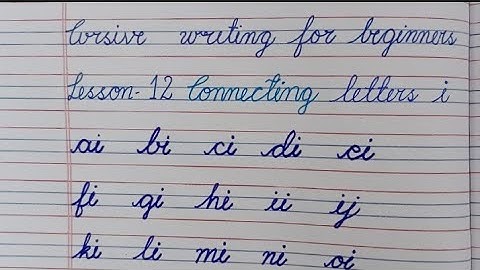 Cursive writing for beginners
Lesson-12 Connecting letters i
ai bi ci di ei
fi gi hi ii ij
ki li mi ni oi